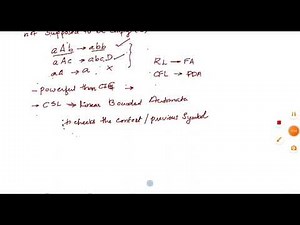 not supposed to be empty
aAb → abb
aAc → abcD
aA → a ×
RL → FA
CFL → PDA
- Powerful than CFG →
→ CSL → Linear Bounded Automata
↳ checks the context / previous symbol